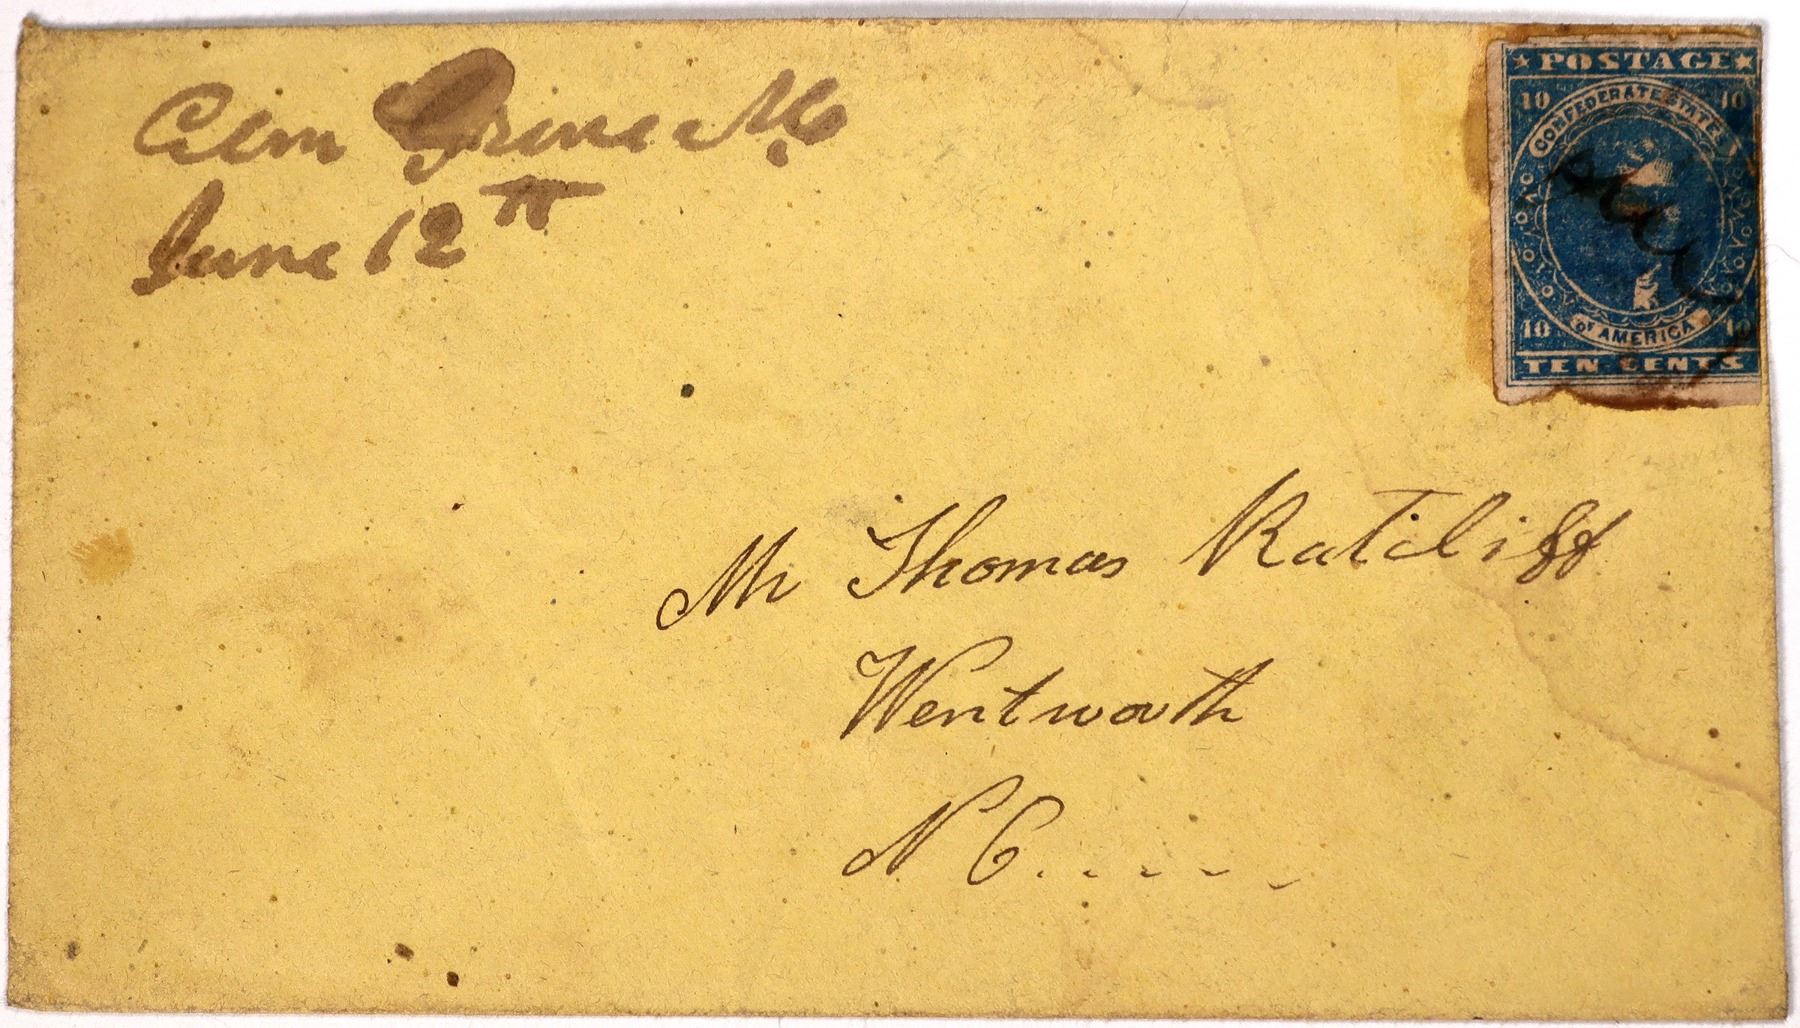 Elm Grove NC
June 12th
★ POSTAGE ★
10 10
CONFEDERATE STATES
OF AMERICA
10 10
TEN CENTS
Mr Thomas Ratcliff
Wentworth
N. C. . . . . .